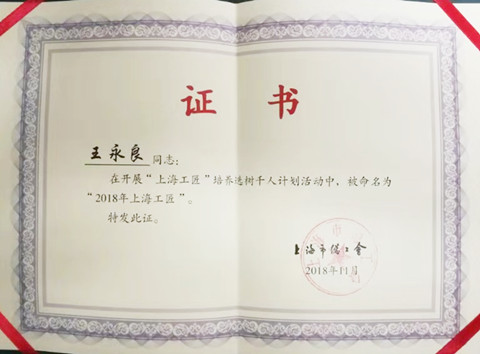 证书
王永良同志:
在开展“上海工匠”培养选树千人计划活动中,被命名为
“2018年上海工匠”。
特发此证。
上海市总工会
2018年11月